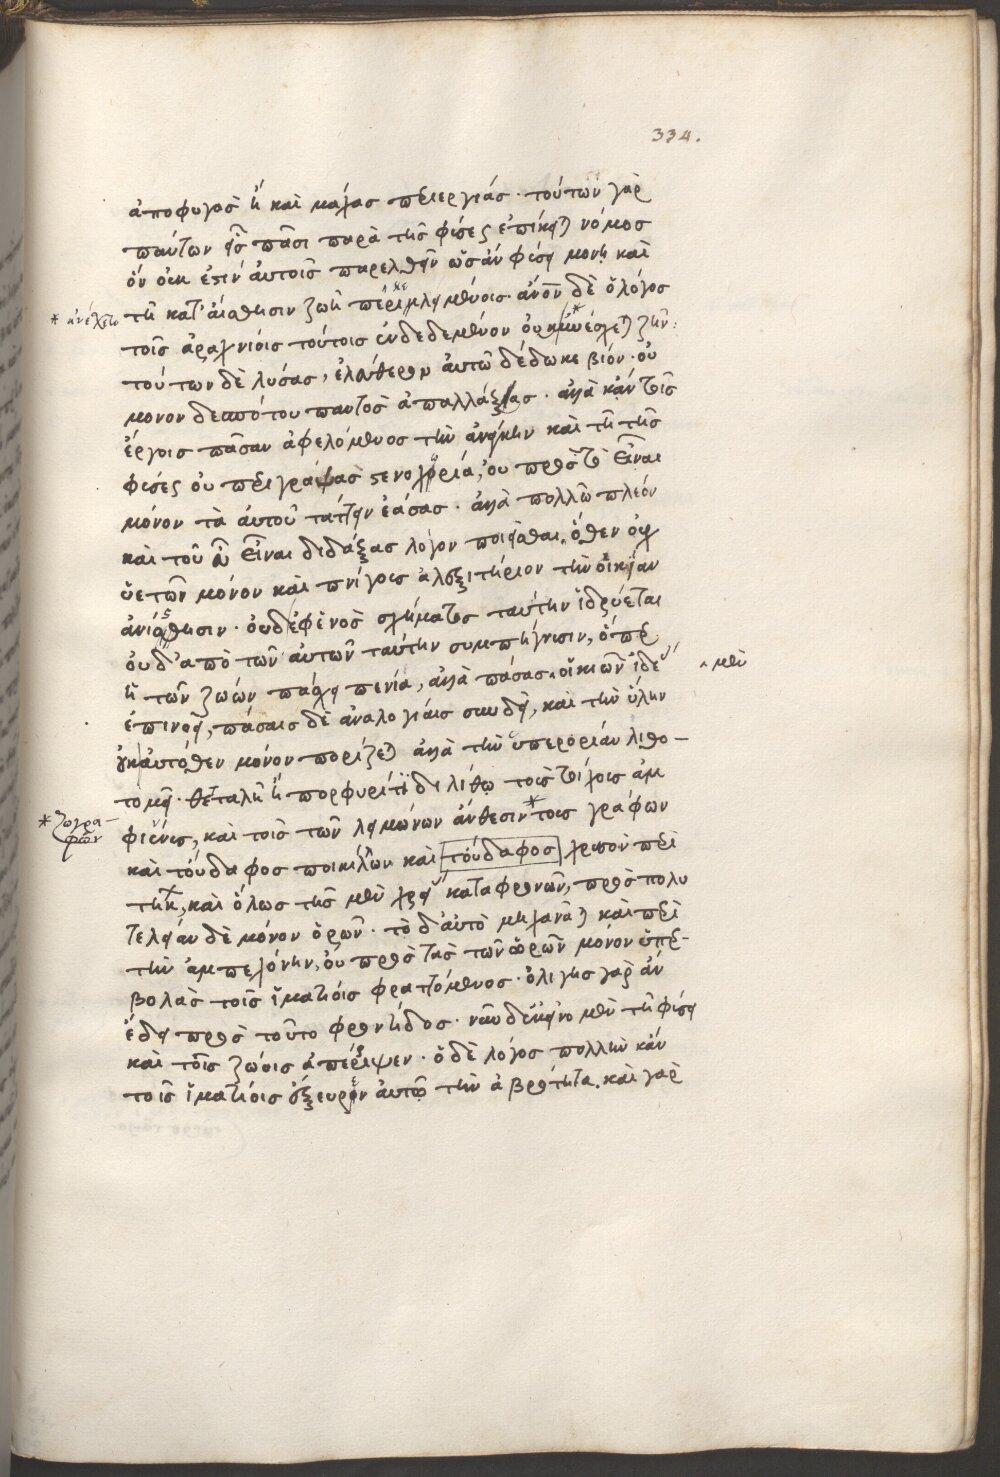 334.
ἀποφυγὸς ἢ καὶ μαχας περιεργιάς · τούτων γὰρ
πάντων πᾶσι παρὰ τῆς φύσεως νόμος
ὃν οὐκ ἐστιν αὐτοῖς παρελθεῖν ὡς ἂν φύσει μονη καὶ
τῇ κατ' αἴσθησιν ζωῇ · δὲ ὁ λόγος
* ἀνέχεται
τοῖς ἀραχνιόις τούτοις ἐνδεδεμένον οὐκ ζῆν:
τούτων δὲ λυσας, ἐλεύθερον αὐτῷ δέδωκε βιόν · οὐ
μονον δεσπότου παντὸς ἀπαλλάξας · ἀλλὰ κἀν τοῖς
ἔργοις πᾶσαν ἀφελόμενος τὴν ἀνάγκην καὶ τῇ τῆς
φύσεως οὐ περιγράψας στενοχωρία, οὐ πρὸς τὸ εἶναι
μόνον τὰ αὐτοῦ τάττειν ἐάσας · ἀλλὰ πολλῷ πλεόν
καὶ τοῦ εὖ εἶναι διδάξας λόγον ποιεῖσθαι, ὅθεν οὐχ
ὑετῶν μόνον καὶ πνίγους ἀλεξιτήριον τὴν οἰκίαν
ἀνίστησιν · οὐδ' ἐφ' ἑνὸς σχήματος ταύτην ἱδρύεται
οὐδ' ἀπὸ τῶν αὐτῶν ταύτην συμπήγνυσιν, ὅπερ
ἡ τῶν ζώων πάσχει πενία, ἀλλὰ πάσας οἰκιῶν ἰδέας
^ μὲν
ἐπινοεῖ, πάσαις δὲ ἀναλογίαις συνδεῖ, καὶ τὴν ὕλην
οὐκ αὐτόθεν μόνον πορίζεται ἀλλὰ τὴν ὑπερορίαν λιθο-
τομεῖ · θετταλῇ ἢ πορφυρίτιδι λίθῳ τοὺς τοίχους ἀμ
φιεννὺς, καὶ τοῖς τῶν λειμώνων ἄνθεσιν * τοις γράφων
* ζωγρα-
φῶν
καὶ τοὔδαφος ποικίλλων καὶ τοὔδαφος χρυσὸν περι
καὶ ὅλως τῆς μὲν χρείας καταφρονῶν, πρὸς πολυ
τέλειαν δὲ μόνον ὁρῶν · τὸ δ' αὐτὸ μηχανᾶται καὶ περὶ
τὴν ἀμπεχόνην, οὐ πρὸς τὰς τῶν ὡρῶν μόνον ὑπερ-
βολὰς τοῖς ἱματίοις φραττόμενος · ὀλίγης γὰρ ἂν
ἔδει πρὸς τοῦτο φροντίδος · νῦν δ' ἐκεῖνο μὲν τῇ φύσει
καὶ τοῖς ζώοις ἀπέρριψεν · ὁ δὲ λόγος πολλὴν κἀν
τοῖς ἱματίοις ἐξευρεῖν αὐτῷ τὴν ἁβρότητα. καὶ γὰρ